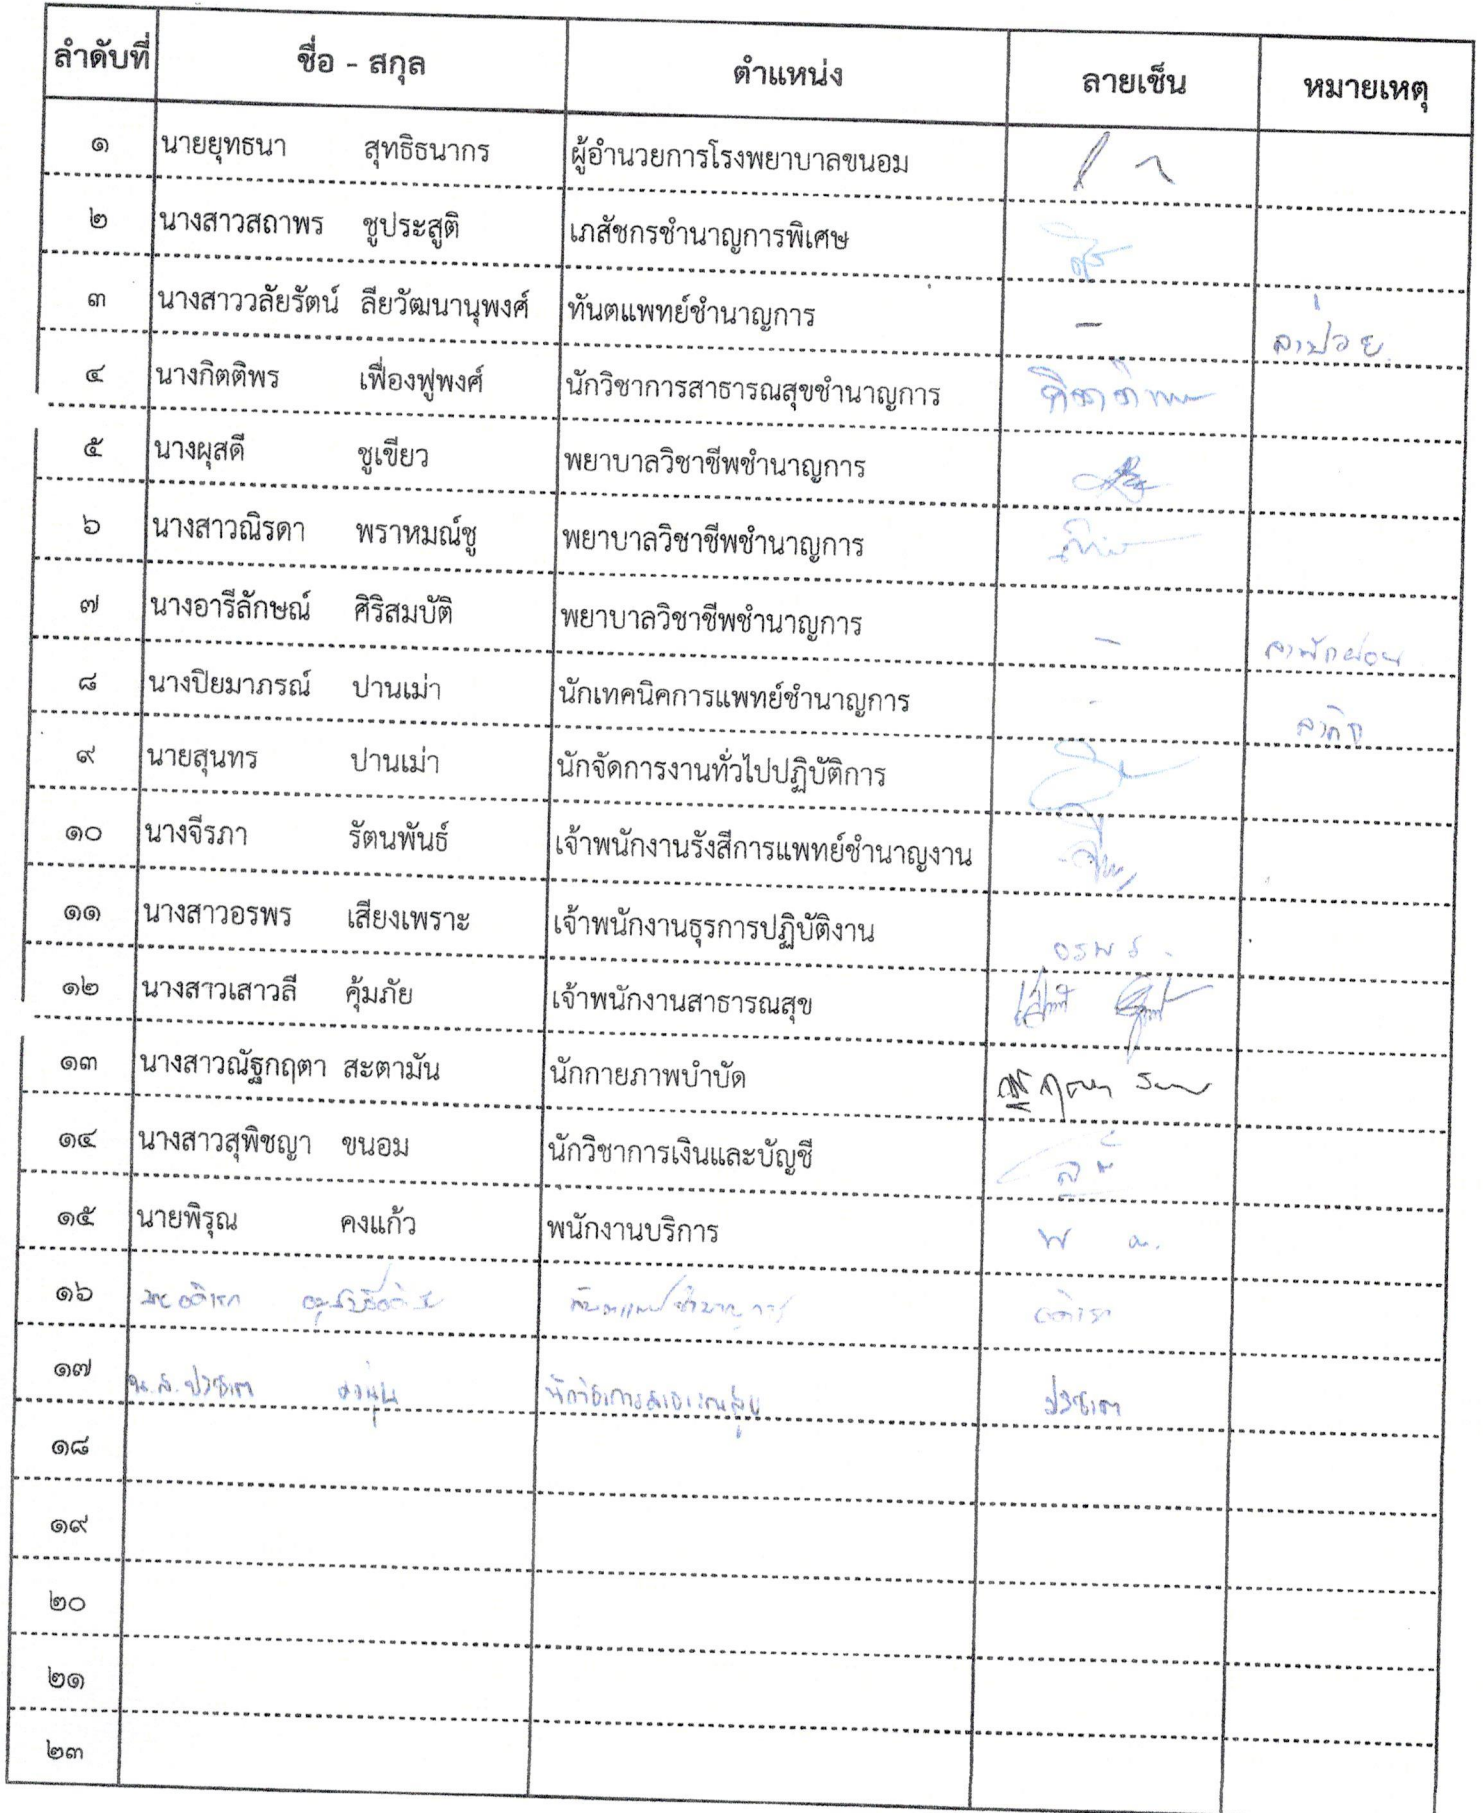 ลำดับที่ ชื่อ - สกุล ตำแหน่ง ลายเซ็น หมายเหตุ
๑ นายยุทธนา สุทธิธนากร ผู้อำนวยการโรงพยาบาลขนอม
๒ นางสาวสถาพร ชูประสูติ เภสัชกรชำนาญการพิเศษ
๓ นางสาววลัยรัตน์ ลียวัฒนานุพงศ์ ทันตแพทย์ชำนาญการ - ลาป่วย
๔ นางกิตติพร เฟื่องฟูพงศ์ นักวิชาการสาธารณสุขชำนาญการ กิตติพร
๕ นางผุสดี ชูเขียว พยาบาลวิชาชีพชำนาญการ
๖ นางสาวณิรดา พราหมณ์ชู พยาบาลวิชาชีพชำนาญการ
๗ นางอารีลักษณ์ ศิริสมบัติ พยาบาลวิชาชีพชำนาญการ - ลาพักผ่อน
๘ นางปิยมาภรณ์ ปานเม่า นักเทคนิคการแพทย์ชำนาญการ - ลากิจ
๙ นายสุนทร ปานเม่า นักจัดการงานทั่วไปปฏิบัติการ
๑๐ นางจีรภา รัตนพันธ์ เจ้าพนักงานรังสีการแพทย์ชำนาญงาน
๑๑ นางสาวอรพร เสียงเพราะ เจ้าพนักงานธุรการปฏิบัติงาน อรพร
๑๒ นางสาวเสาวลี คุ้มภัย เจ้าพนักงานสาธารณสุข
๑๓ นางสาวณัฐกฤตา สะตามัน นักกายภาพบำบัด
๑๔ นางสาวสุพิชญา ขนอม นักวิชาการเงินและบัญชี
๑๕ นายพิรุณ คงแก้ว พนักงานบริการ
๑๖ นายอดิเรก ทันตแพทย์ชำนาญการ อดิเรก
๑๗ น.ส.ปวีณา นักวิชาการสาธารณสุข
๑๘
๑๙
๒๐
๒๑
๒๓